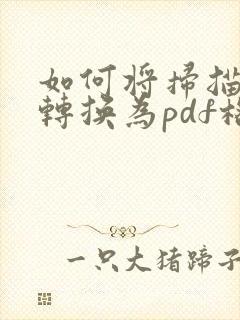 如何将掃描
轉換為pdf格
一只大猪蹄子